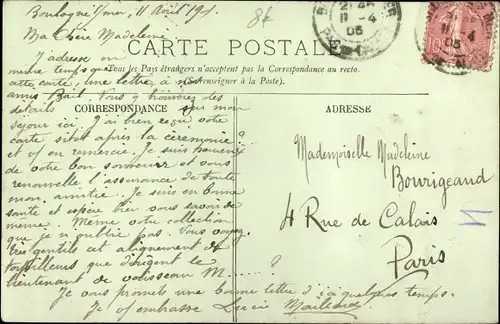 Boulogne s/mer, 11 Avril 191
Ma Chère Madeleine
8f
CARTE POSTALE
Tous les Pays étrangers n'acceptent pas la Correspondance au recto.
(Se renseigner à la Poste.)
CORRESPONDANCE
ADRESSE
J'adresse en
même temps que
cette carte, une lettre, à nos
amis Bail. Vous y trouverez des
détails sur mon
séjour ici. J'ai bien reçu votre
carte sitôt après la cérémonie?
et vs en remercie. Je suis heureux
de votre bon souvenir et vous
renouvelle l'assurance de toute
mon amitié. Je suis en bonne
santé et espère bien vous savoir de
même. Même votre collection
que je n'oublie pas. Vous voyez
très gentils cet alignement de
torpilleurs que dirigent le
lieutenant de vaisseau M........?
Je vous promets une bonne lettre d'ici quelques temps.
Je vs embrasse Lucie
Mademoiselle Madeleine
Bourigeaud
4 Rue de Calais
Paris
11-4
05